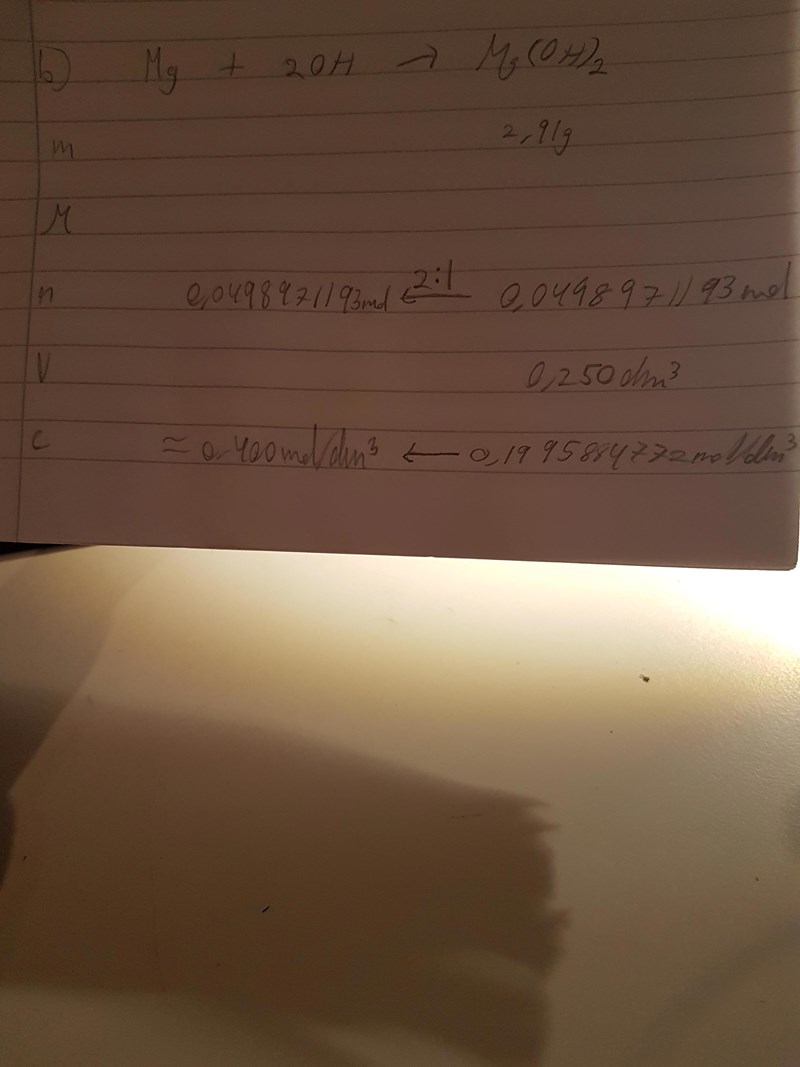 b) Mg + 2OH → Mg(OH)₂
m 2,91g
M
n 0,0498971193mol ←2:1— 0,0498971193mol
V 0,250dm³
c ≈ 0,400mol/dm³ ← 0,1995884772mol/dm³